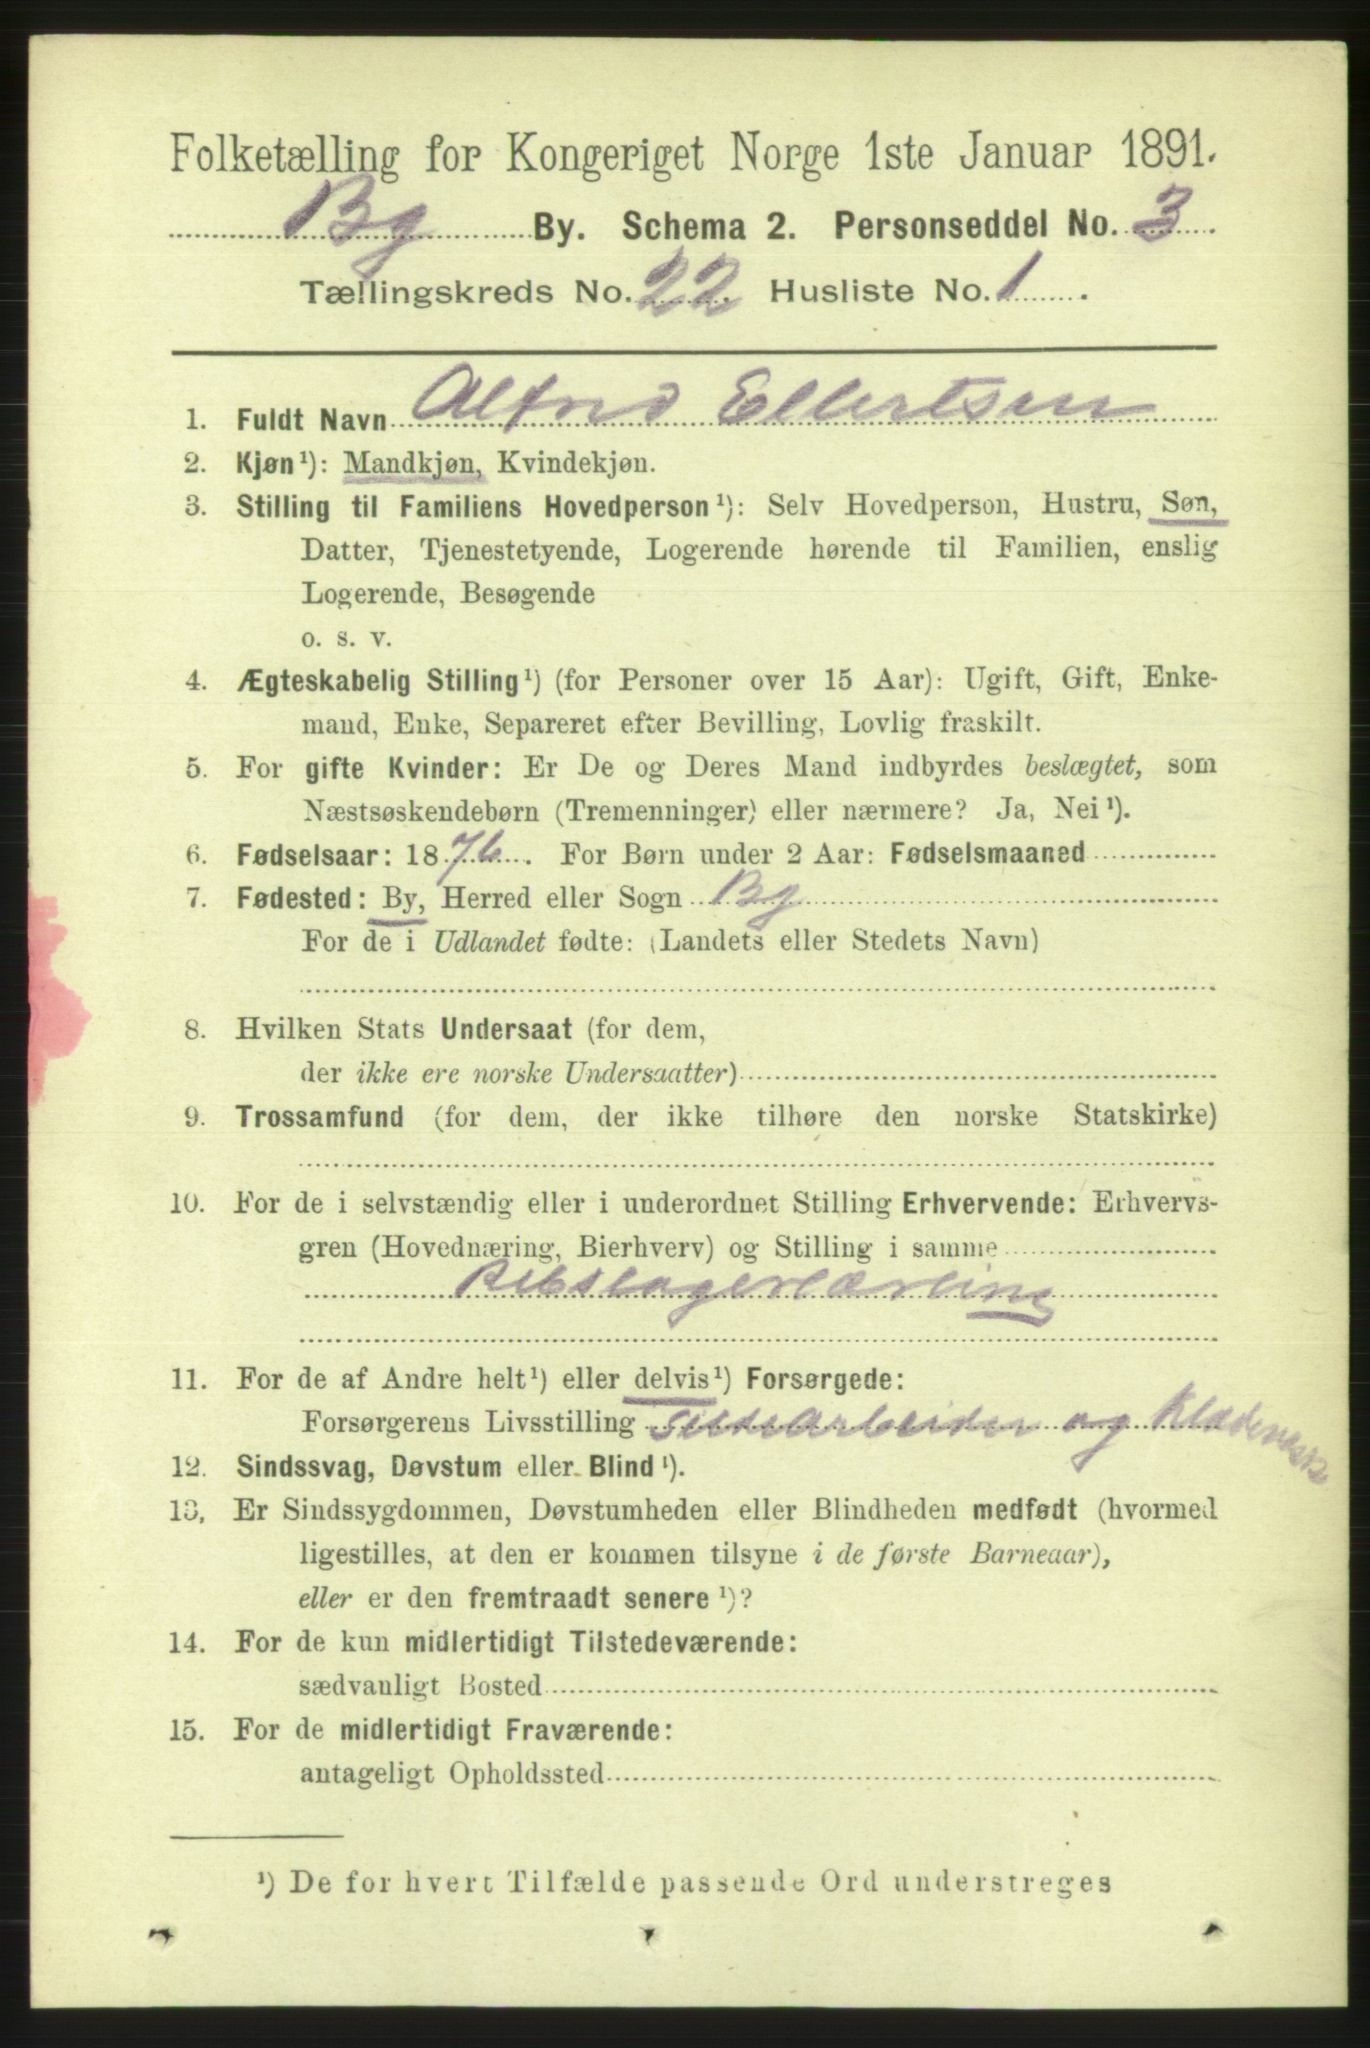 Folketælling for Kongeriget Norge 1ste Januar 1891.
Bg By. Schema 2. Personseddel No. 3.
Tællingskreds No. 22 Husliste No. 1.
1. Fuldt Navn Alfred Ellertsen
2. Kjøn¹): Mandkjøn, Kvindekjøn.
3. Stilling til Familiens Hovedperson¹): Selv Hovedperson, Hustru, Søn,
Datter, Tjenestetyende, Logerende hørende til Familien, enslig
Logerende, Besøgende
o. s. v.
4. Ægteskabelig Stilling¹) (for Personer over 15 Aar): Ugift, Gift, Enke-
mand, Enke, Separeret efter Bevilling, Lovlig fraskilt.
5. For gifte Kvinder: Er De og Deres Mand indbyrdes beslægtet, som
Næstsøskendebørn (Tremenninger) eller nærmere? Ja, Nei¹).
6. Fødselsaar: 1876. For Børn under 2 Aar: Fødselsmaaned
7. Fødested: By, Herred eller Sogn Bg
For de i Udlandet fødte: (Landets eller Stedets Navn)
8. Hvilken Stats Undersaat (for dem,
der ikke ere norske Undersaatter)
9. Trossamfund (for dem, der ikke tilhøre den norske Statskirke)
10. For de i selvstændig eller i underordnet Stilling Erhvervende: Erhvervs-
gren (Hovednæring, Bierhverv) og Stilling i samme
Rebslagerlærling
11. For de af Andre helt¹) eller delvis¹) Forsørgede:
Forsørgerens Livsstilling Sildearbeider og
12. Sindssvag, Døvstum eller Blind¹).
13, Er Sindssygdommen, Døvstumheden eller Blindheden medfødt (hvormed
ligestilles, at den er kommen tilsyne i de første Barneaar),
eller er den fremtraadt senere¹)?
14. For de kun midlertidigt Tilstedeværende:
sædvanligt Bosted
15. For de midlertidigt Fraværende:
antageligt Opholdssted
¹) De for hvert Tilfælde passende Ord understreges